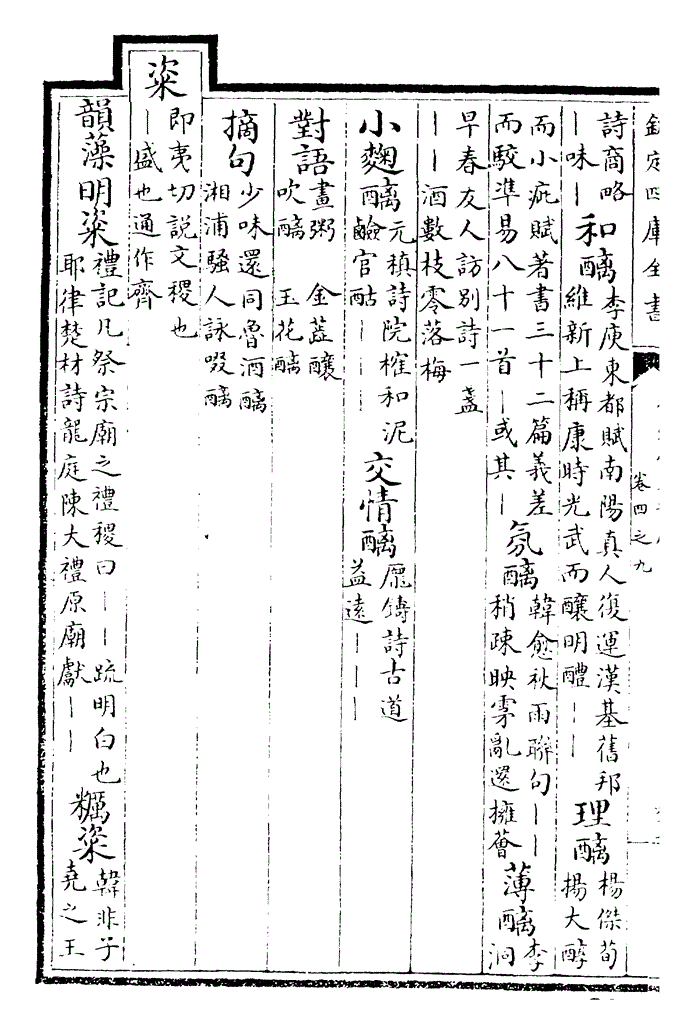 欽定四庫全書
卷四之九
詩商略
｜味｜
和醨
李庾東都賦南陽真人復運漢基舊邦
維新上稱康時光武而釀明醴｜｜
理醨
楊傑荀
揚大醇
而小疵賦著書三十二篇義差
而駮準易八十一首｜或其｜
氛醨
韓愈秋雨聯句｜｜
稍疎映雺亂還擁薈
薄醨
李
洞
早春友人訪别詩一盞
｜｜酒數枝零落梅
小麴醨
元稹詩院榷和泥
鹼官酤｜｜｜
交情醨
厖鑄詩古道
益遠｜｜｜
對語
畫粥　金葢釀
吹醨　玉花醨
摘句
少味還同魯酒醨
湘浦騷人詠啜醨
粢
即夷切説文稷也
｜盛也通作齊
韻藻明粢
禮記凡祭宗廟之禮稷曰｜｜疏明白也
耶律楚材詩龍庭陳大禮原廟獻｜｜
糲粢
韓非子
堯之王